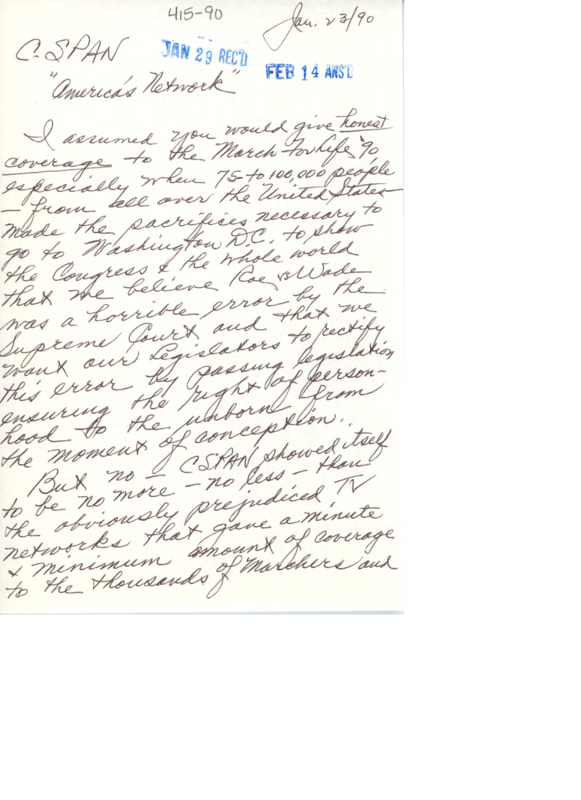 415-90
Jan. 23/90
C-SPAN
JAN 29 REC'D
FEB 14 ANS'D
"America's Network"
I assumed you would give honest
coverage to the March For Life '90
especially when 75-to 100,000 people
- from all over the United States -
made the sacrifices necessary to
go to Washington D.C. to show
the Congress & the whole world
that we believe Roe vs Wade
was a horrible error by the
Supreme Court and that we
want our Legislators to rectify
this error by passing legislation
ensuring the right of person-
hood to the unborn from
the moment of conception.
But no - CSPAN showed itself
to be no more - no less - than
the obviously prejudiced TV
networks that gave a minute
& minimum amount of coverage
to the thousands of Marchers and